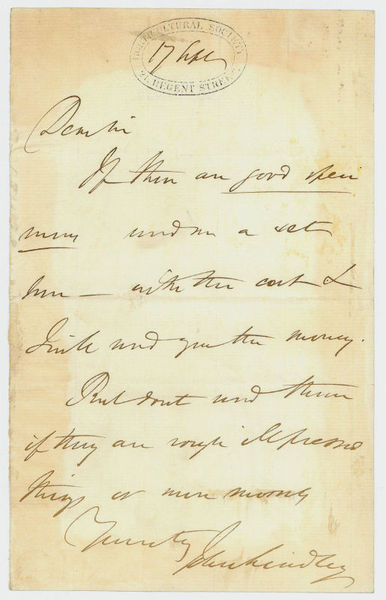 HORTICULTURAL SOCIETY
21, REGENT STREET
17 Sept
Dear Sir
If these are good speci
mens send me a set
here — with the cost &
I will send you the money.
But don't send them
if they are rough ill pressed
things or mere mosses
Yours truly
John Lindley